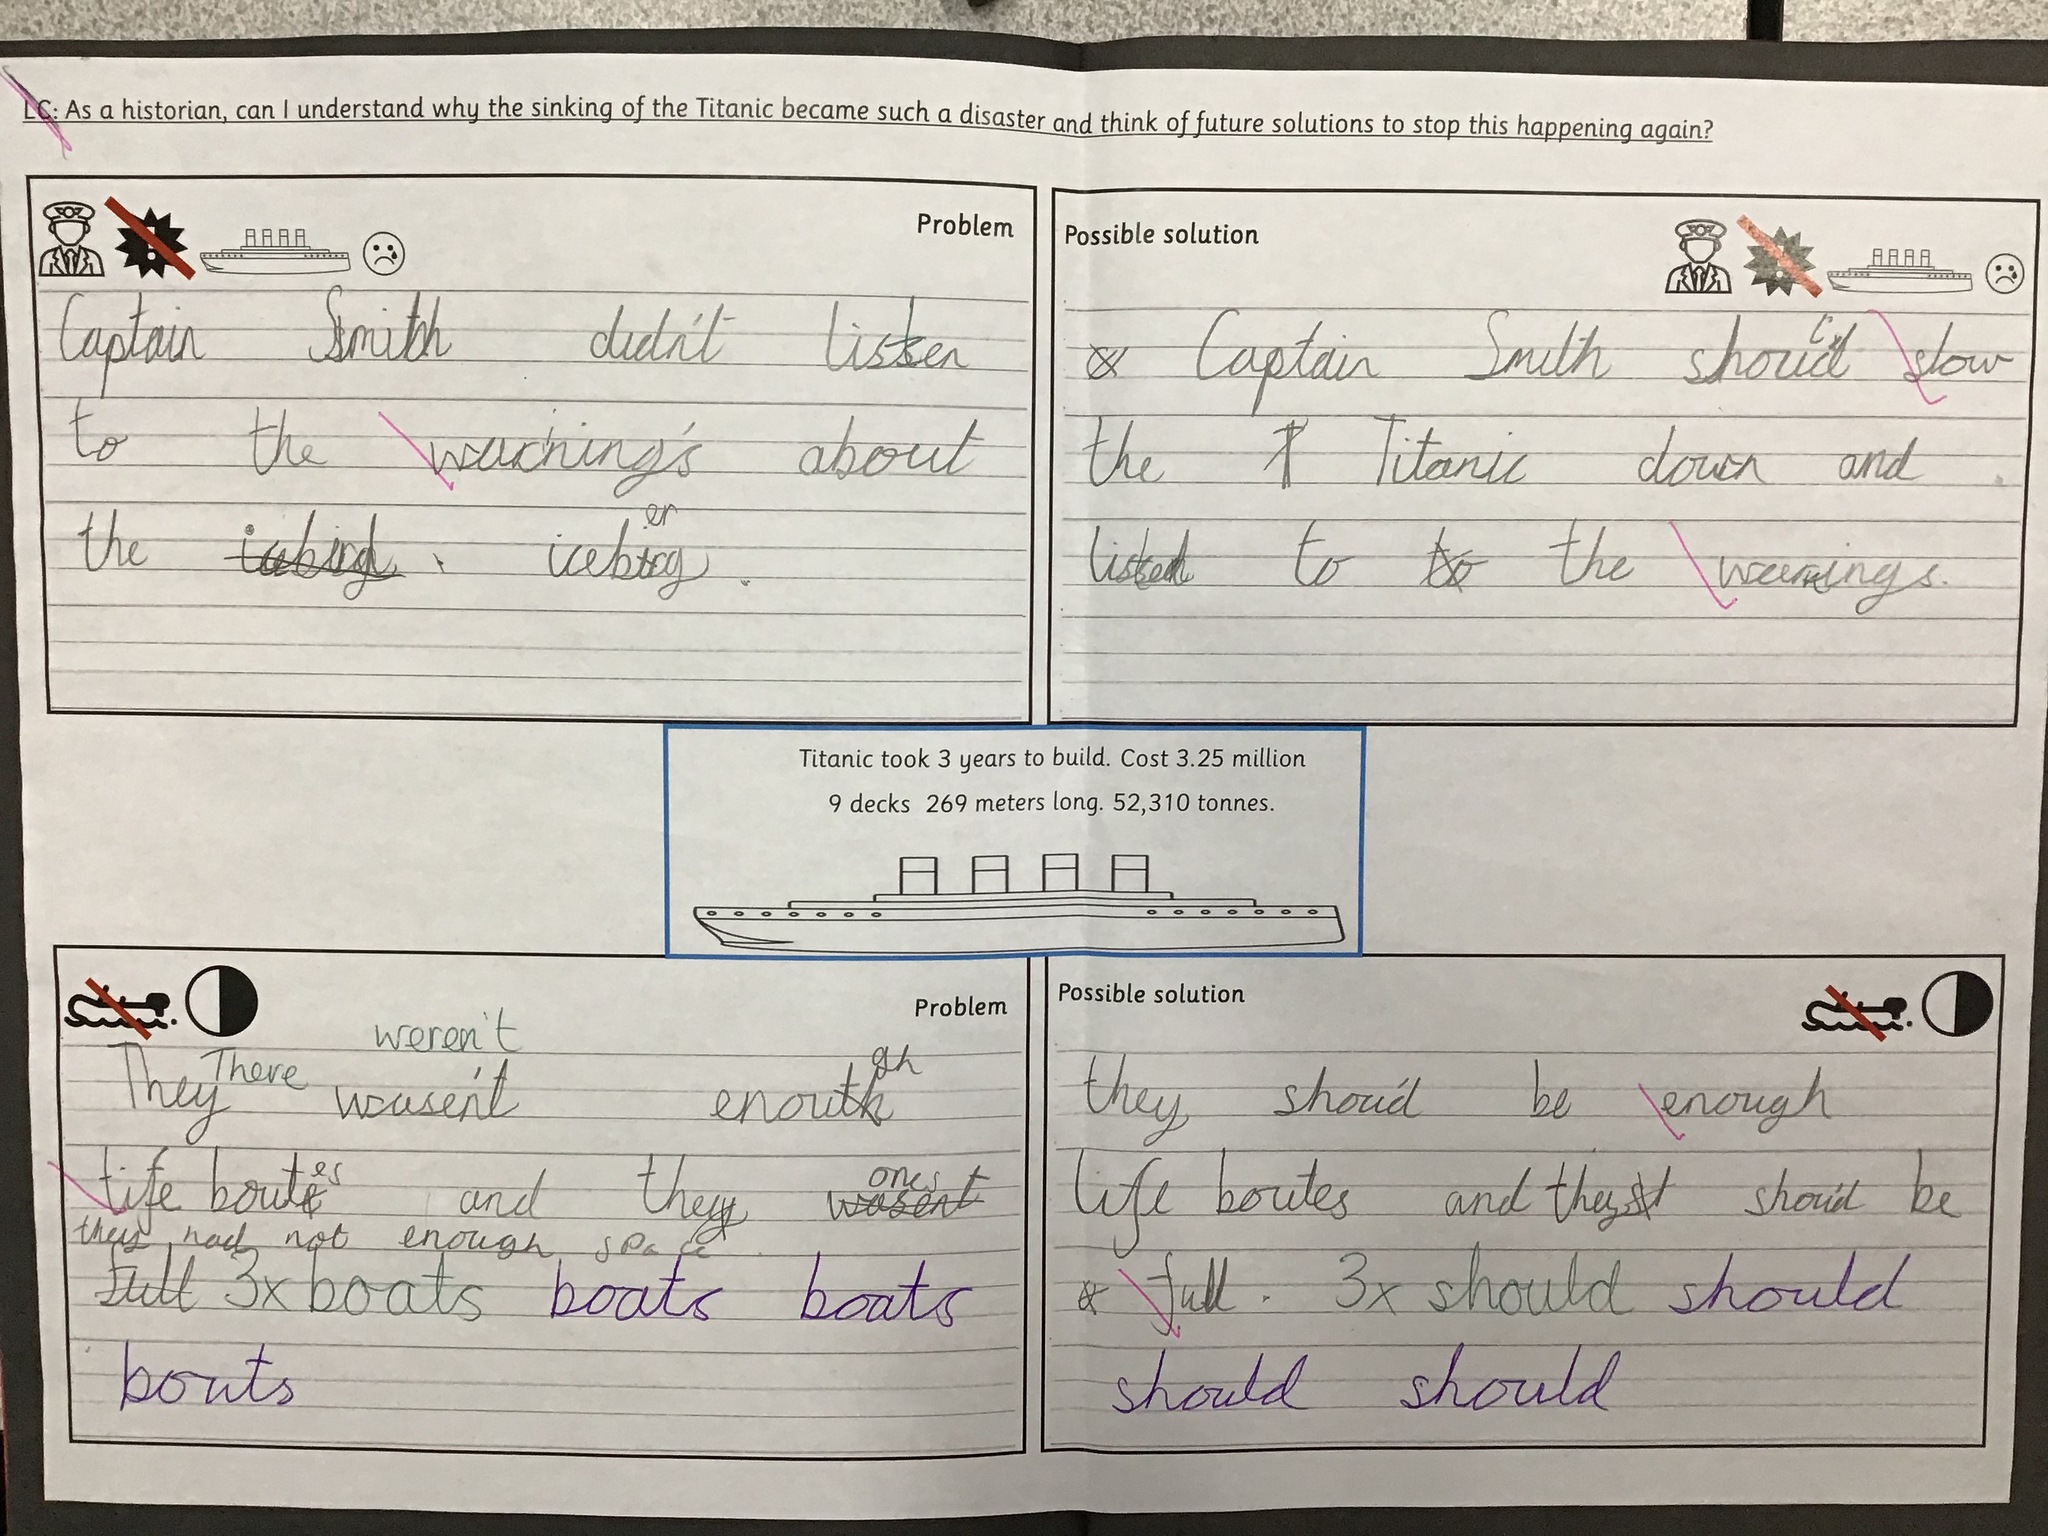 LC: As a historian, can I understand why the sinking of the Titanic became such a disaster and think of future solutions to stop this happening again?
Problem
Captain Smith didn't listen
to the warning's about
the iceberg.
Possible solution
Captain Smith should slow
the Titanic down and
listen to to the warnings.
Titanic took 3 years to build. Cost 3.25 million
9 decks 269 meters long. 52,310 tonnes.
Problem
weren't
There gh
They wasen't enouth
es ones
life boats and they wasent
they had not enough space
full 3x boats boats boats
boats
Possible solution
they shou'd be enough
life boates and they shou'd be
full. 3x should should
should should